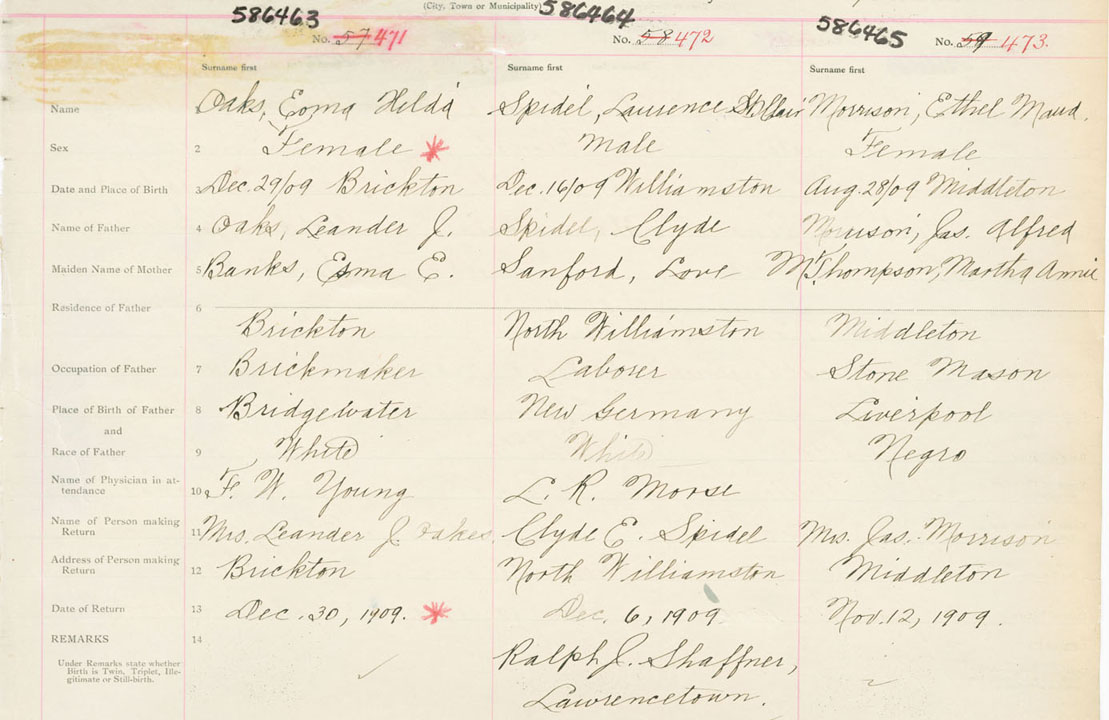 (City, Town or Municipality)
586463 586464 586465
No. 57 471 No. 58 472 No. 59 473.
Surname first Surname first Surname first
Name Oaks, Ezma Hilda Spidel, Laurence St.Clair Morrison, Ethel Maud.
Sex 2 Female * Male Female
Date and Place of Birth 3 Dec. 29/09 Brickton Dec. 16/09 Williamston Aug. 28/09 Middleton
Name of Father 4 Oaks, Leander J. Spidel, Clyde Morrison, Jas. Alfred
Maiden Name of Mother 5 Banks, Esma E. Sanford, Love Thompson, Martha Annie
Residence of Father 6
Brickton North Williamston Middleton
Occupation of Father 7 Brickmaker Laborer Stone Mason
Place of Birth of Father 8 Bridgewater New Germany Liverpool
and
Race of Father 9 White White Negro
Name of Physician in at-
tendance 10 F. W. Young L. R. Morse
Name of Person making
Return 11 Mrs. Leander J. Oakes Clyde E. Spidel Mrs. Jas. Morrison
Address of Person making
Return 12 Brickton North Williamston Middleton
Date of Return 13 Dec. 30, 1909. * Dec. 6, 1909 Nov. 12, 1909.
REMARKS 14
Under Remarks state whether
Birth is Twin, Triplet, Ille-
gitimate or Still-birth.
Ralph J. Shaffner,
Lawrencetown.